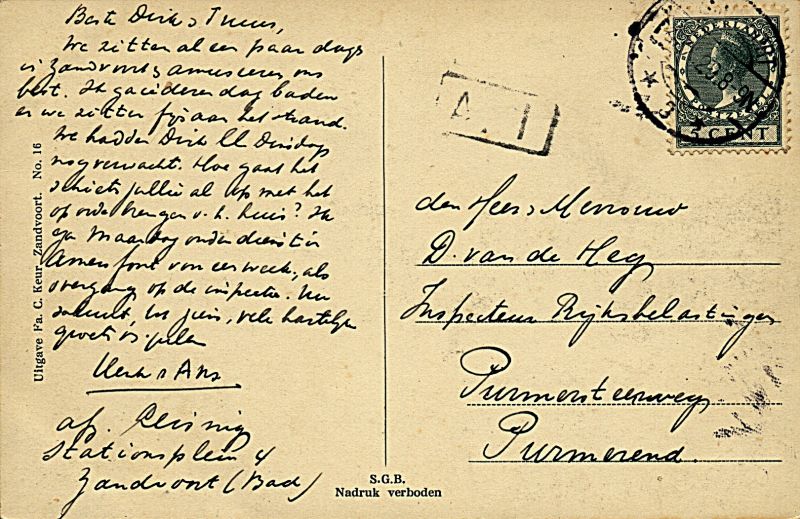 Beste Dirk & Truus,
We zitten al een paar dags
is Zandvoort & amuseren ons
best. Ik ga iederen dag baden
en we zitten fijn aan het strand.
We hadden Dirk ll Dinsdag
nog verwacht. Hoe gaat het
jullie al op met het
op orde brengen v. h. huis? Ik
ga Maandag onder dienst in
Amersfoort voor een week, als
overgang op de inspectie. Nu
, tot ziens, vele hartelijke
groeten v. jullie
& Ans
Stationsplein 4
Zandvoort (Bad)
Uitgave Fa. C. Keur, Zandvoort. No. 16
S.G.B.
Nadruk verboden
A. 1
NEDERLAND
5 CENT
den Heer & Mevrouw
D. van de Heg
Inspecteur Rijksbelastingen
Purmersteenweg
Purmerend.